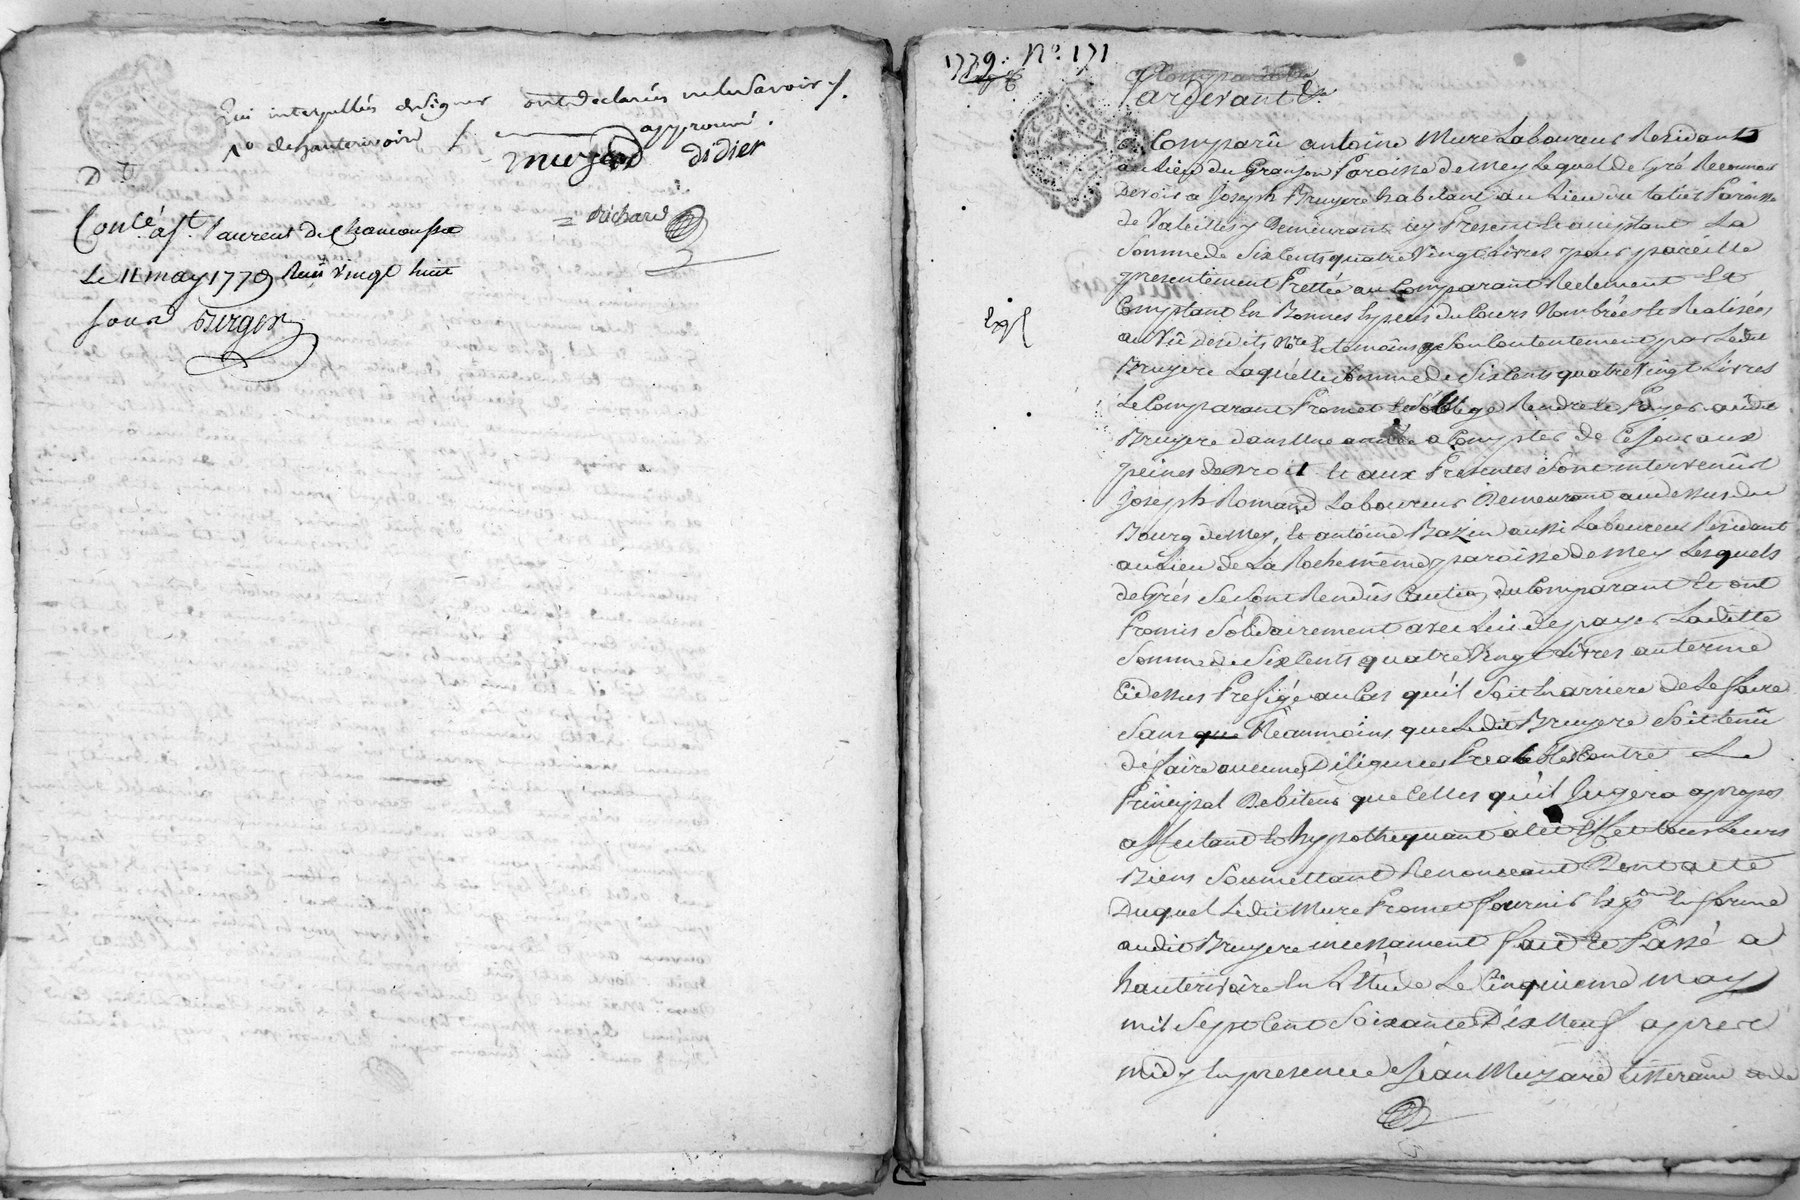 qui interpellés designer ont declarés ne le Savoir /.
1° de hauterivoire / approuvé.
muzard didier
Richard
Conlé a St Laurent de Chamousset
Le 11 may 1779 Reçu vingt huit
sous Burgos
1779. N° 171
Pardevant &a
a Comparû antoine Mure Laboureur Residant
au Lieu du Granjon Paroisse de Mey Lequel de Gré Reconnait
Devoir a Joseph Bruyere habitant au Lieu du
de Valeilles y Demeurant icy Present Acceptant La
Somme de Six Cents quatre Vingt Livres pour pareille
presentement Prettée au Comparant Reelement Et
Comptant En Bonnes Especes du Cours Nombrées Et Realisées
au Vû Desdits Nre Et temoins a Son Contentement par Ledit
Bruyere Laquelle Somme de Six Cents quatre Vingt Livres
Le Comparant Promet Et S'oblige Rendre Et Payer audit
Bruyere dans Une année a Compter de Ce Jour aux
peines de Droit Et aux Presentes Sont intervenûs
Joseph Romand Laboureur Demeurant audessus du
Bourg de Mey, Et antoine Bazin aussi Laboureur Residant
au Lieu de La Roche même paroisse de Mey Lesquels
de Grés Se Sont Rendûs Caution du Comparant Et ont
Promis Solidairement avec Lui de payer Ladette
Somme de Six Cents quatre Vingt Livres au terme
Cidessus Prefigé au Cas qu'il Soit En arriere de Le faire
Sans que Neanmoins que Ledit Bruyere Soit tenû
de faire aucunes Diligences Prealables Contre Le
Principal Debiteur que Celles qu'il Jugera apropos
affectant Et hypothequant a Cet Effet tous Leurs
Biens Soumettant Renonceant Dont acte
Duquel Ledit Mure Promet fournir En forme
audit Bruyere incessament fait Et Passé a
hauterivoire En L'Etude Le Cinquieme may
mil Sept Cent Soixante Dix Neuf apres
midy En presence de Jean Muzard tisserand de